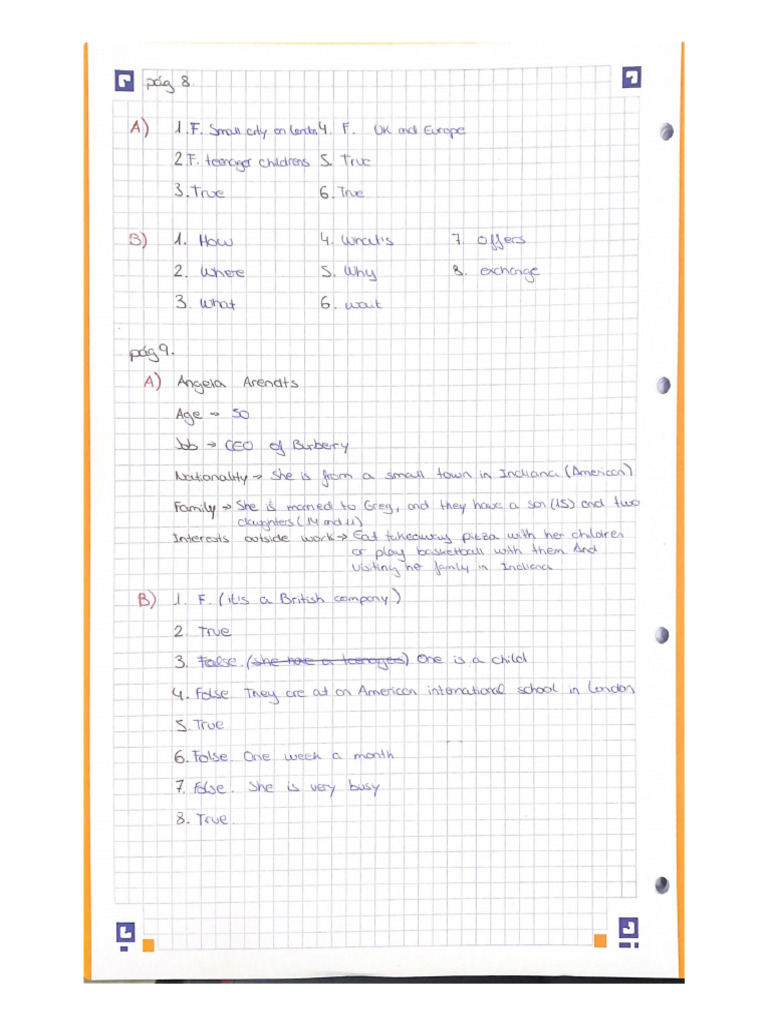 pág 8.
A) 1. F. Small city on London 4. F. UK and Europe
2. F. teenager childrens 5. True
3. True 6. True
B) 1. How 4. What's 7. offers
2. Where 5. Why 8. exchange
3. What 6. wait
pág 9.
A) Angela Arendts
Age → 50
Job → CEO of Burberry
Nationality → She is from a small town in Indiana (American)
Family → She is married to Greg, and they have a son (15) and two
daughters (14 and 11)
Interests outside work → Eat takeaway pizza with her children
or play basketball with them. And
visiting he family in Indiana
B) 1. F. (it's a British company)
2. True
3. False. (she have a teenages) One is a child
4. False They are at an American international school in London
5. True
6. False. One week a month
7. False. She is very busy
8. True.